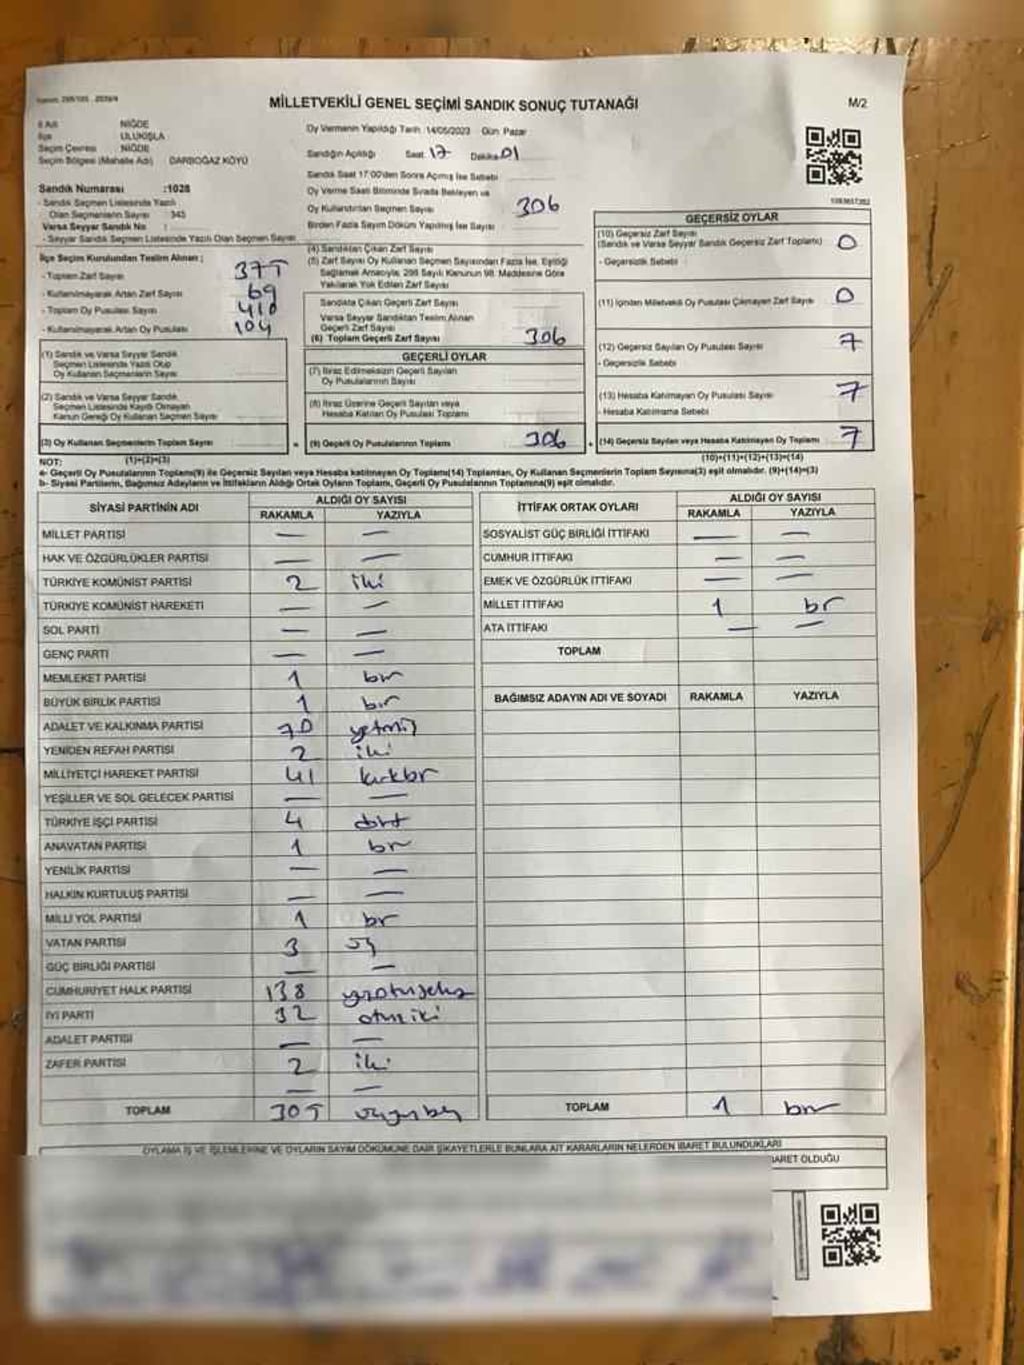 MİLLETVEKİLİ GENEL SEÇİMİ SANDIK SONUÇ TUTANAĞI
M/2
İl Adı NİĞDE
İlçe ULUKIŞLA
Seçim Çevresi NİĞDE
Seçim Bölgesi (Mahalle Adı) DARBOĞAZ KÖYÜ
Sandık Numarası :1028
- Sandık Seçmen Listesinde Yazılı
Olan Seçmenlerin Sayısı : 345
Varsa Seyyar Sandık No :
- Seyyar Sandık Seçmen Listesinde Yazılı Olan Seçmen Sayısı
İlçe Seçim Kurulundan Teslim Alınan ;
- Toplam Zarf Sayısı 375
- Kullanılmayarak Artan Zarf Sayısı 69
- Toplam Oy Pusulası Sayısı 410
- Kullanılmayarak Artan Oy Pusulası 104
(1) Sandık ve Varsa Seyyar Sandık
Seçmen Listesinde Yazılı Olup
Oy Kullanan Seçmenlerin Sayısı
(2) Sandık ve Varsa Seyyar Sandık
Seçmen Listesinde Kayıtlı Olmayan
Kanun Gereği Oy Kullanan Seçmen Sayısı
(3) Oy Kullanan Seçmenlerin Toplam Sayısı
(1)+(2)=(3)
Oy Vermenin Yapıldığı Tarih :14/05/2023 Gün: Pazar
Sandığın Açıldığı Saat 17 Dakika 01
Sandık Saat 17:00'den Sonra Açılmış İse Sebebi
Oy Verme Saati Bitiminde Sırada Bekleyen ve
Oy Kullandırılan Seçmen Sayısı 306
Birden Fazla Sayım Döküm Yapılmış İse Sayısı
(4) Sandıktan Çıkan Zarf Sayısı
(5) Zarf Sayısı Oy Kullanan Seçmen Sayısından Fazla İse, Eşitliği
Sağlamak Amacıyla, 298 Sayılı Kanunun 98. Maddesine Göre
Yakılarak Yok Edilen Zarf Sayısı
Sandıkta Çıkan Geçerli Zarf Sayısı
Varsa Seyyar Sandıktan Teslim Alınan
Geçerli Zarf Sayısı
(6) Toplam Geçerli Zarf Sayısı 306
GEÇERLİ OYLAR
(7) İtiraz Edilmeksizin Geçerli Sayılan
Oy Pusulalarının Sayısı
(8) İtiraz Üzerine Geçerli Sayılan veya
Hesaba Katılan Oy Pusulası Toplamı
(9) Geçerli Oy Pusulalarının Toplamı 306
GEÇERSİZ OYLAR
(10) Geçersiz Zarf Sayısı
(Sandık ve Varsa Seyyar Sandık Geçersiz Zarf Toplamı) 0
- Geçersizlik Sebebi
(11) İçinden Milletvekili Oy Pusulası Çıkmayan Zarf Sayısı 0
(12) Geçersiz Sayılan Oy Pusulası Sayısı 7
- Geçersizlik Sebebi
(13) Hesaba Katılmayan Oy Pusulası Sayısı 7
- Hesaba Katılmama Sebebi
(14) Geçersiz Sayılan veya Hesaba Katılmayan Oy Toplamı 7
(10)+(11)+(12)+(13)=(14)
NOT:
a- Geçerli Oy Pusulalarının Toplamı(9) ile Geçersiz Sayılan veya Hesaba katılmayan Oy Toplamı(14) Toplamları, Oy Kullanan Seçmenlerin Toplam Sayısına(3) eşit olmalıdır. (9)+(14)=(3)
b- Siyasi Partilerin, Bağımsız Adayların ve İttifakların Aldığı Ortak Oyların Toplamı, Geçerli Oy Pusulalarının Toplamına(9) eşit olmalıdır.
SİYASİ PARTİNİN ADI ALDIĞI OY SAYISI
RAKAMLA YAZIYLA
MİLLET PARTİSİ — —
HAK VE ÖZGÜRLÜKLER PARTİSİ — —
TÜRKİYE KOMÜNİST PARTİSİ 2 iki
TÜRKİYE KOMÜNİST HAREKETİ — —
SOL PARTİ — —
GENÇ PARTİ — —
MEMLEKET PARTİSİ 1 bir
BÜYÜK BİRLİK PARTİSİ 1 bir
ADALET VE KALKINMA PARTİSİ 70 yetmiş
YENİDEN REFAH PARTİSİ 2 iki
MİLLİYETÇİ HAREKET PARTİSİ 41 kırkbir
YEŞİLLER VE SOL GELECEK PARTİSİ — —
TÜRKİYE İŞÇİ PARTİSİ 4 dört
ANAVATAN PARTİSİ 1 bir
YENİLİK PARTİSİ — —
HALKIN KURTULUŞ PARTİSİ — —
MİLLİ YOL PARTİSİ 1 bir
VATAN PARTİSİ 3 üç
GÜÇ BİRLİĞİ PARTİSİ — —
CUMHURİYET HALK PARTİSİ 138 yüzotuzsekiz
İYİ PARTİ 32 otuziki
ADALET PARTİSİ — —
ZAFER PARTİSİ 2 iki
— —
TOPLAM 305 üçyüzbeş
İTTİFAK ORTAK OYLARI ALDIĞI OY SAYISI
RAKAMLA YAZIYLA
SOSYALİST GÜÇ BİRLİĞİ İTTİFAKI — —
CUMHUR İTTİFAKI — —
EMEK VE ÖZGÜRLÜK İTTİFAKI — —
MİLLET İTTİFAKI 1 bir
ATA İTTİFAKI — —
TOPLAM
BAĞIMSIZ ADAYIN ADI VE SOYADI RAKAMLA YAZIYLA
TOPLAM 1 bir
OYLAMA İŞ VE İŞLEMLERİNE VE OYLARIN SAYIM DÖKÜMÜNE DAİR ŞİKAYETLERLE BUNLARA AİT KARARLARIN NELERDEN İBARET BULUNDUKLARI
OLDUĞU